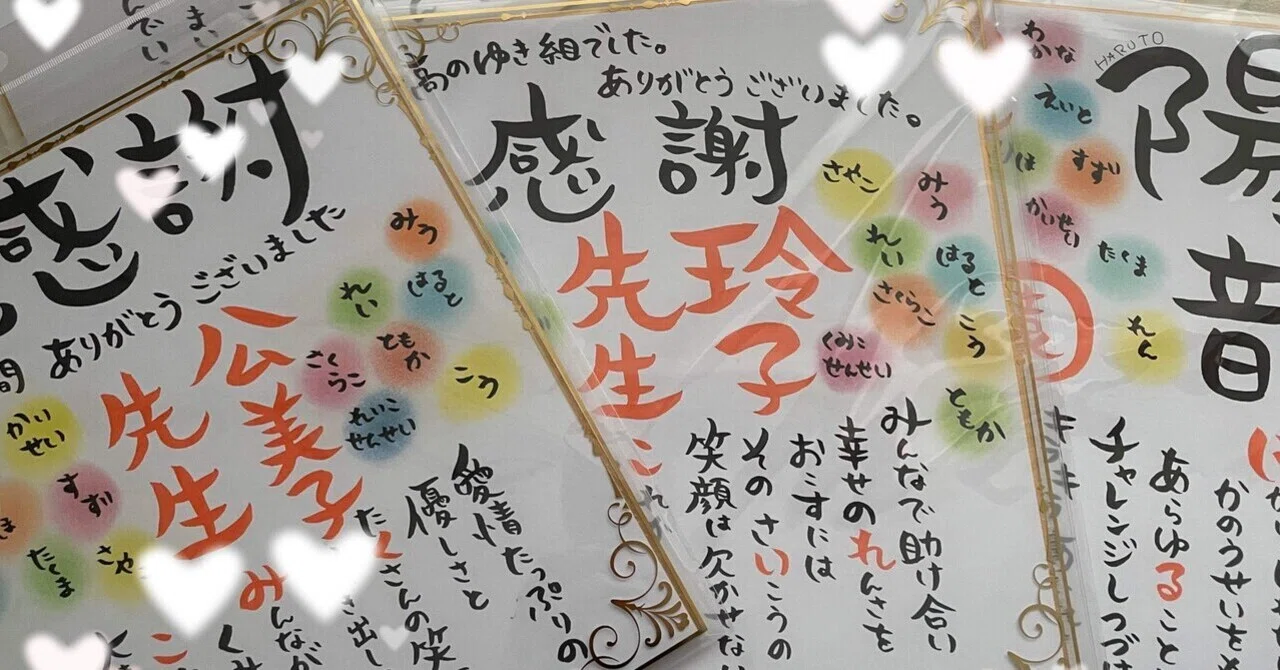 感謝
ありがとうございました
公美子
先生
みう
れい
はると
さくらこ
ともか
こう
れいこ
せんせい
かい
せい
すず
たくま
さや
愛情たっぷりの
優しさと
たくさんの笑
き出し
みんなが
くみ
こ
高のゆき組でした。
ありがとうございました。
感謝
玲子
先生
さやこ
みう
れい
はると
さくらこ
こう
くみこ
せんせい
ともか
みんなで助け合い
幸せのれんさを
おこすには
そのさいこうの
笑顔は欠かせない
HARUTO
陽
音
わかな
えいと
すず
かいせい
たくま
れん
かのうせいを
あらゆること
チャレンジしつづけ